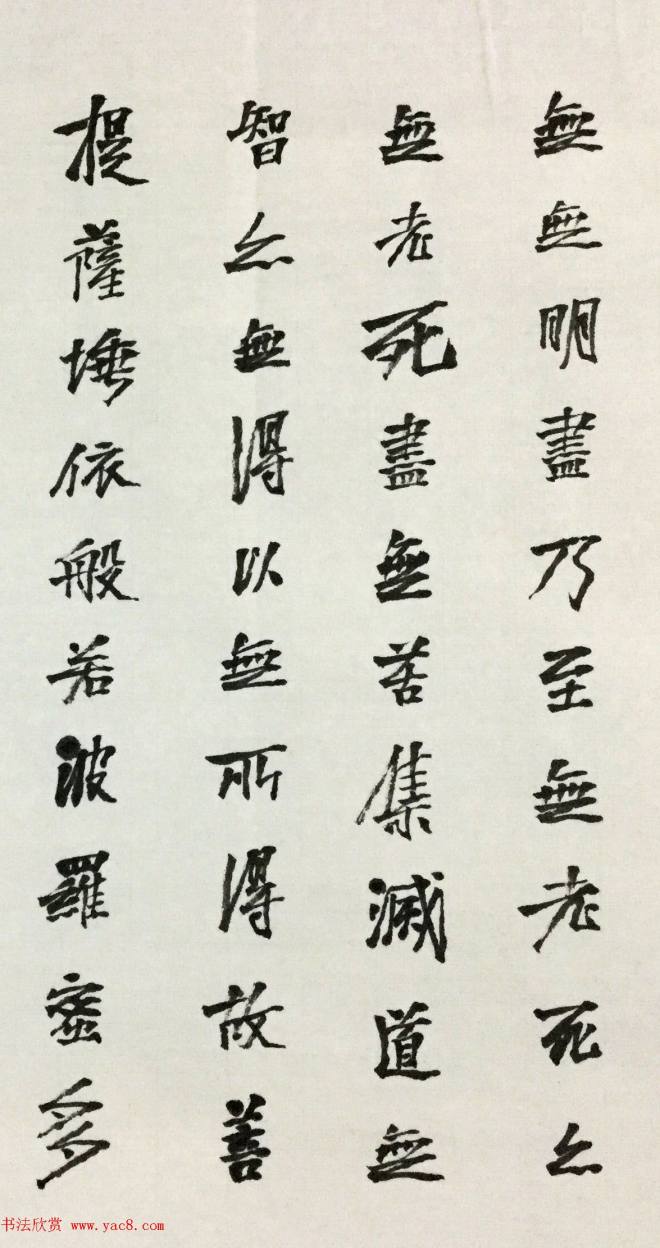 無無明盡乃至無老死亦
無老死盡無苦集滅道無
智亦無得以無所得故善
提薩埵依般若波羅蜜多
书法欣赏 www.yac8.com